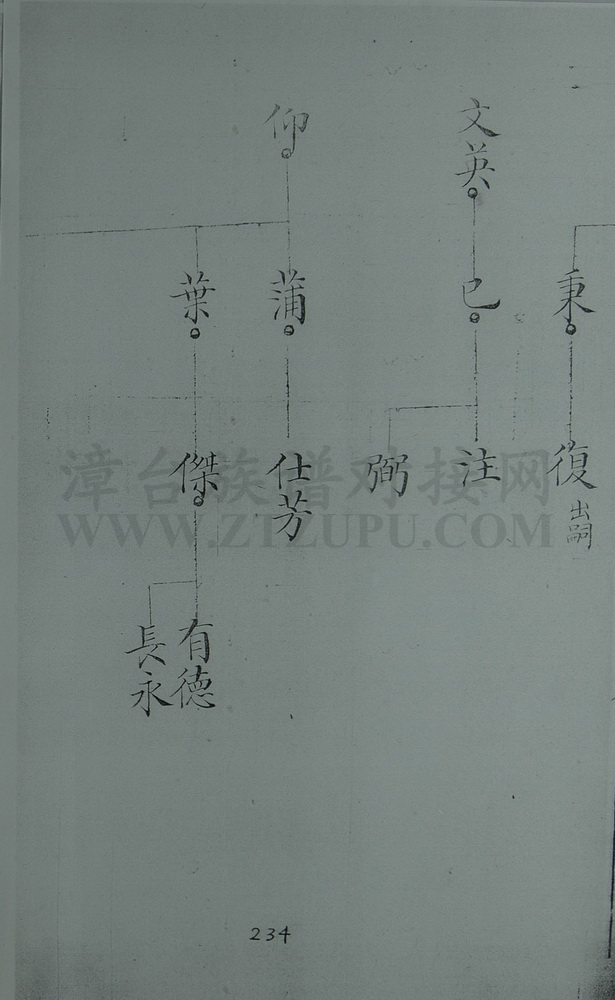 秉
復
出嗣
文英
已
注
弼
仰
蒲
仕芳
葉
傑
有德
長永
漳台族谱对接网
WWW.ZTZUPU.COM
234